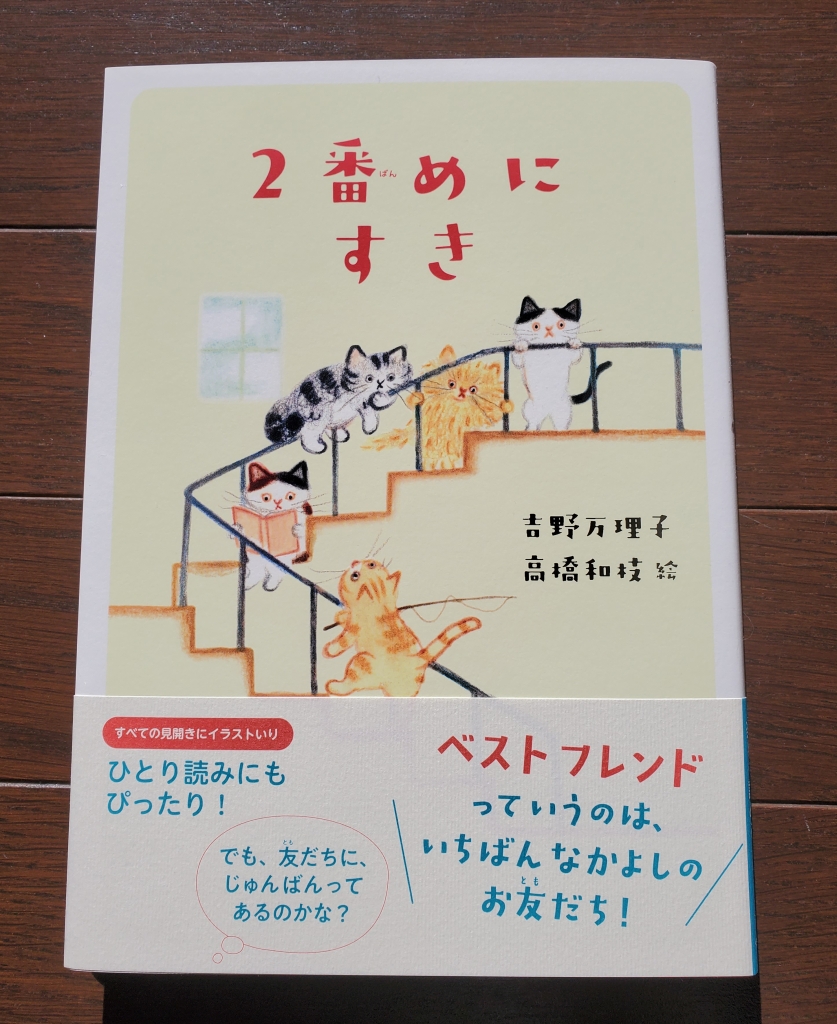 2番めに
ばん
すき
吉野万理子
高橋和枝 絵
すべての見開きにイラストいり
ひとり読みにも
ぴったり！
でも、友だちに、
とも
じゅんばんって
あるのかな？
ベストフレンド
っていうのは、
いちばんなかよしの
お友だち！
とも